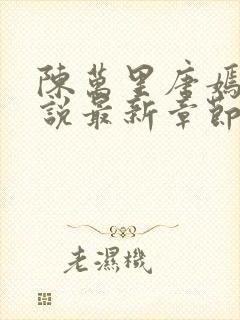 陳萬里唐嫣
說最新章節
老濕機